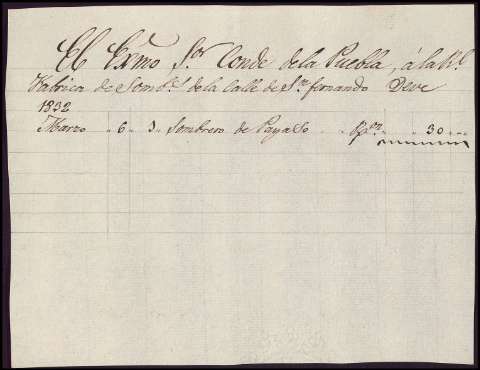 El Exmo Sor Conde de la Puebla, á la Rl
Fabrica de Sombs de la Calle de Sn fernando Deve
1832
Marzo " 6 " 1 Sombrero de Payaso " " Rs on " " " 30 " "